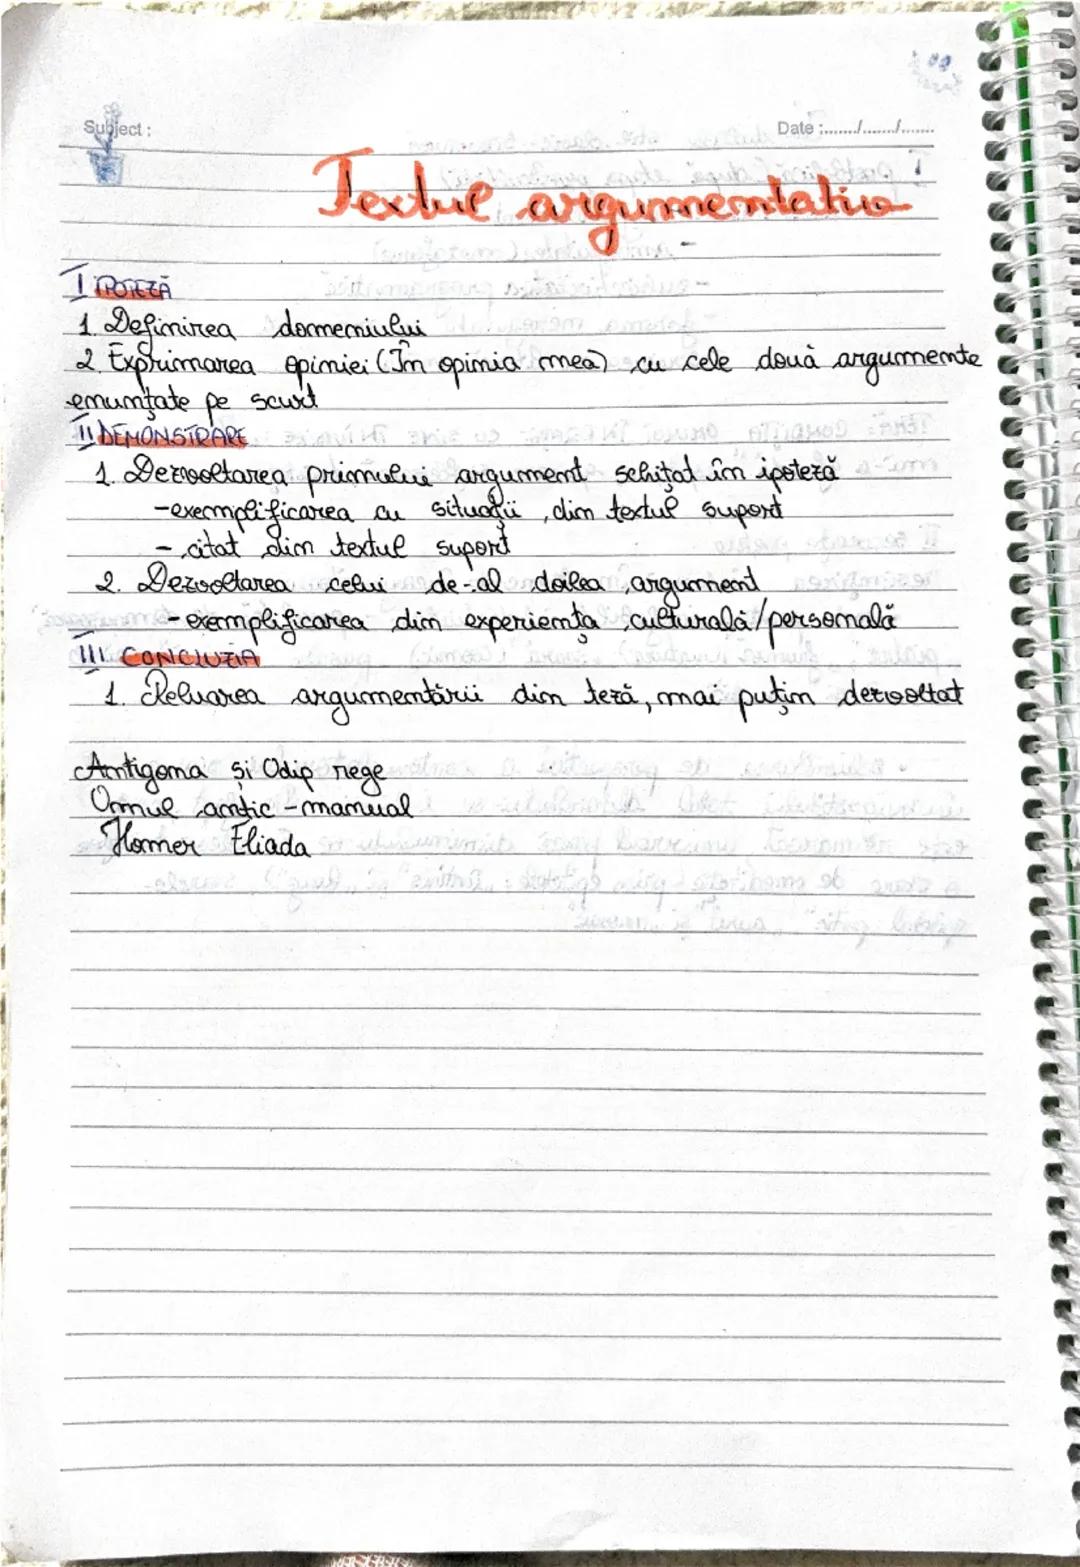 Subject :
Date :......./......./.......
Textul argumentativ
I IPOTEZĂ
1. Definirea domeniului
2. Exprimarea opiniei (În opinia mea) cu cele două argumente
enunțate pe scurt
II DEMONSTRARE
1. Dezvoltarea primului argument schițat în ipoteză
-exemplificarea cu situații din textul suport
- citat din textul suport
2. Dezvoltarea celui de-al doilea argument
-exemplificarea din experiența culturală/personală
III CONCLUZIA
1. Reluarea argumentării din teză, mai puțin dezvoltat
Antigona și Odip rege
Omul antic - manual
Homer Eliada